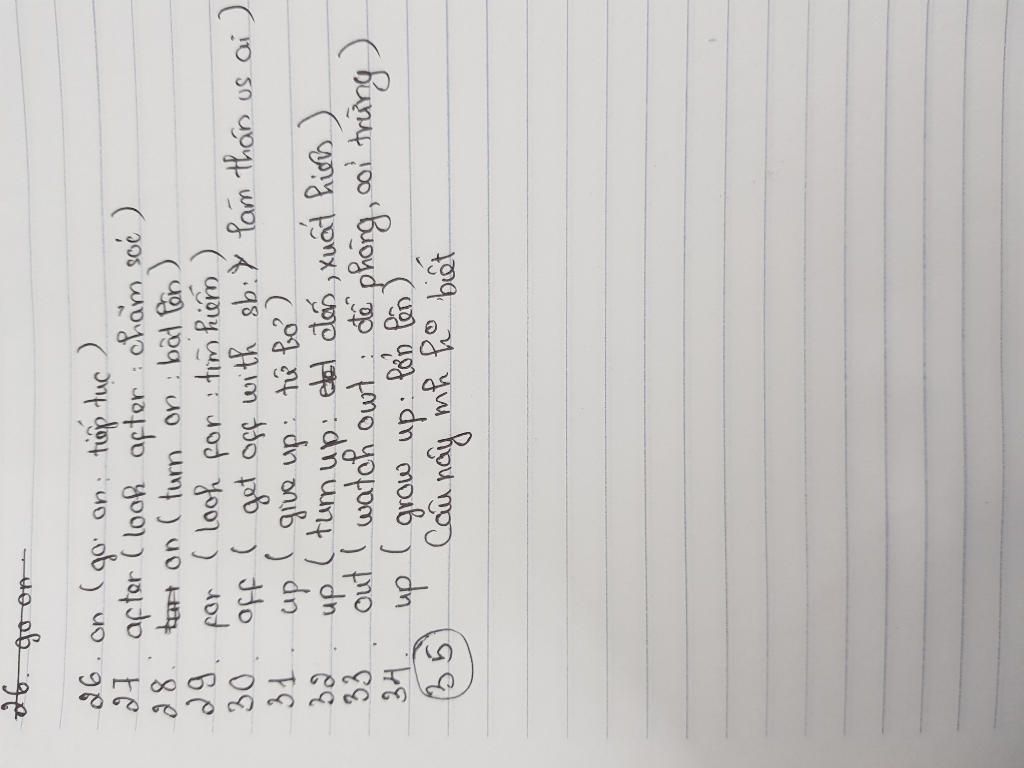 26. go on
26. on (go on: tiếp tục)
27 after (look after: chăm sóc)
28. on (turn on: bật lên)
29. for (look for: tìm kiếm)
30. off ( get off with sb: làm thân vs ai)
31. up ( give up: từ bỏ)
32. up (turn up: đến, xuất hiện)
33. out ( watch out: đề phòng, coi trừng)
34. up ( grow up: lớn lên)
35 Câu này mh ko biết